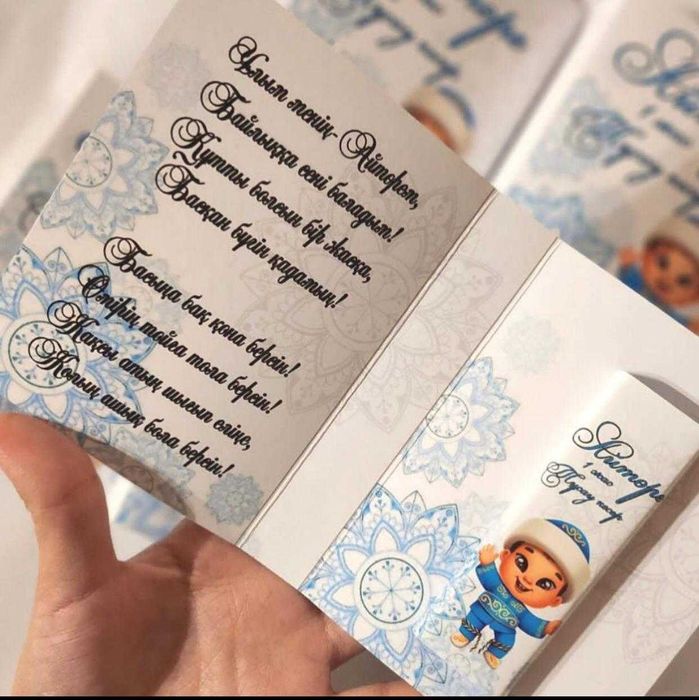 Ұлым менің- Айтөрем,
Байлыққа сені баладым!
Құтты болсын бір жасқа,
Басқан бүгін қадамың!
Басыңа бақ қона берсін!
Өмірің тойға тола берсін!
Жақсы атың шығып еліңе,
Жолың ашық бола берсін!
Айтөре
1 жас
Тұсау кесер